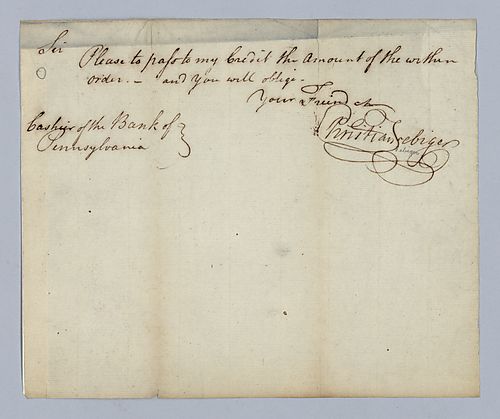 Sir
Please to pass to my Credit the Amount of the within
order. — and You will oblige —
Your Friend &c
Christian Febiger
Cashier of the Bank of
Pennsylvania